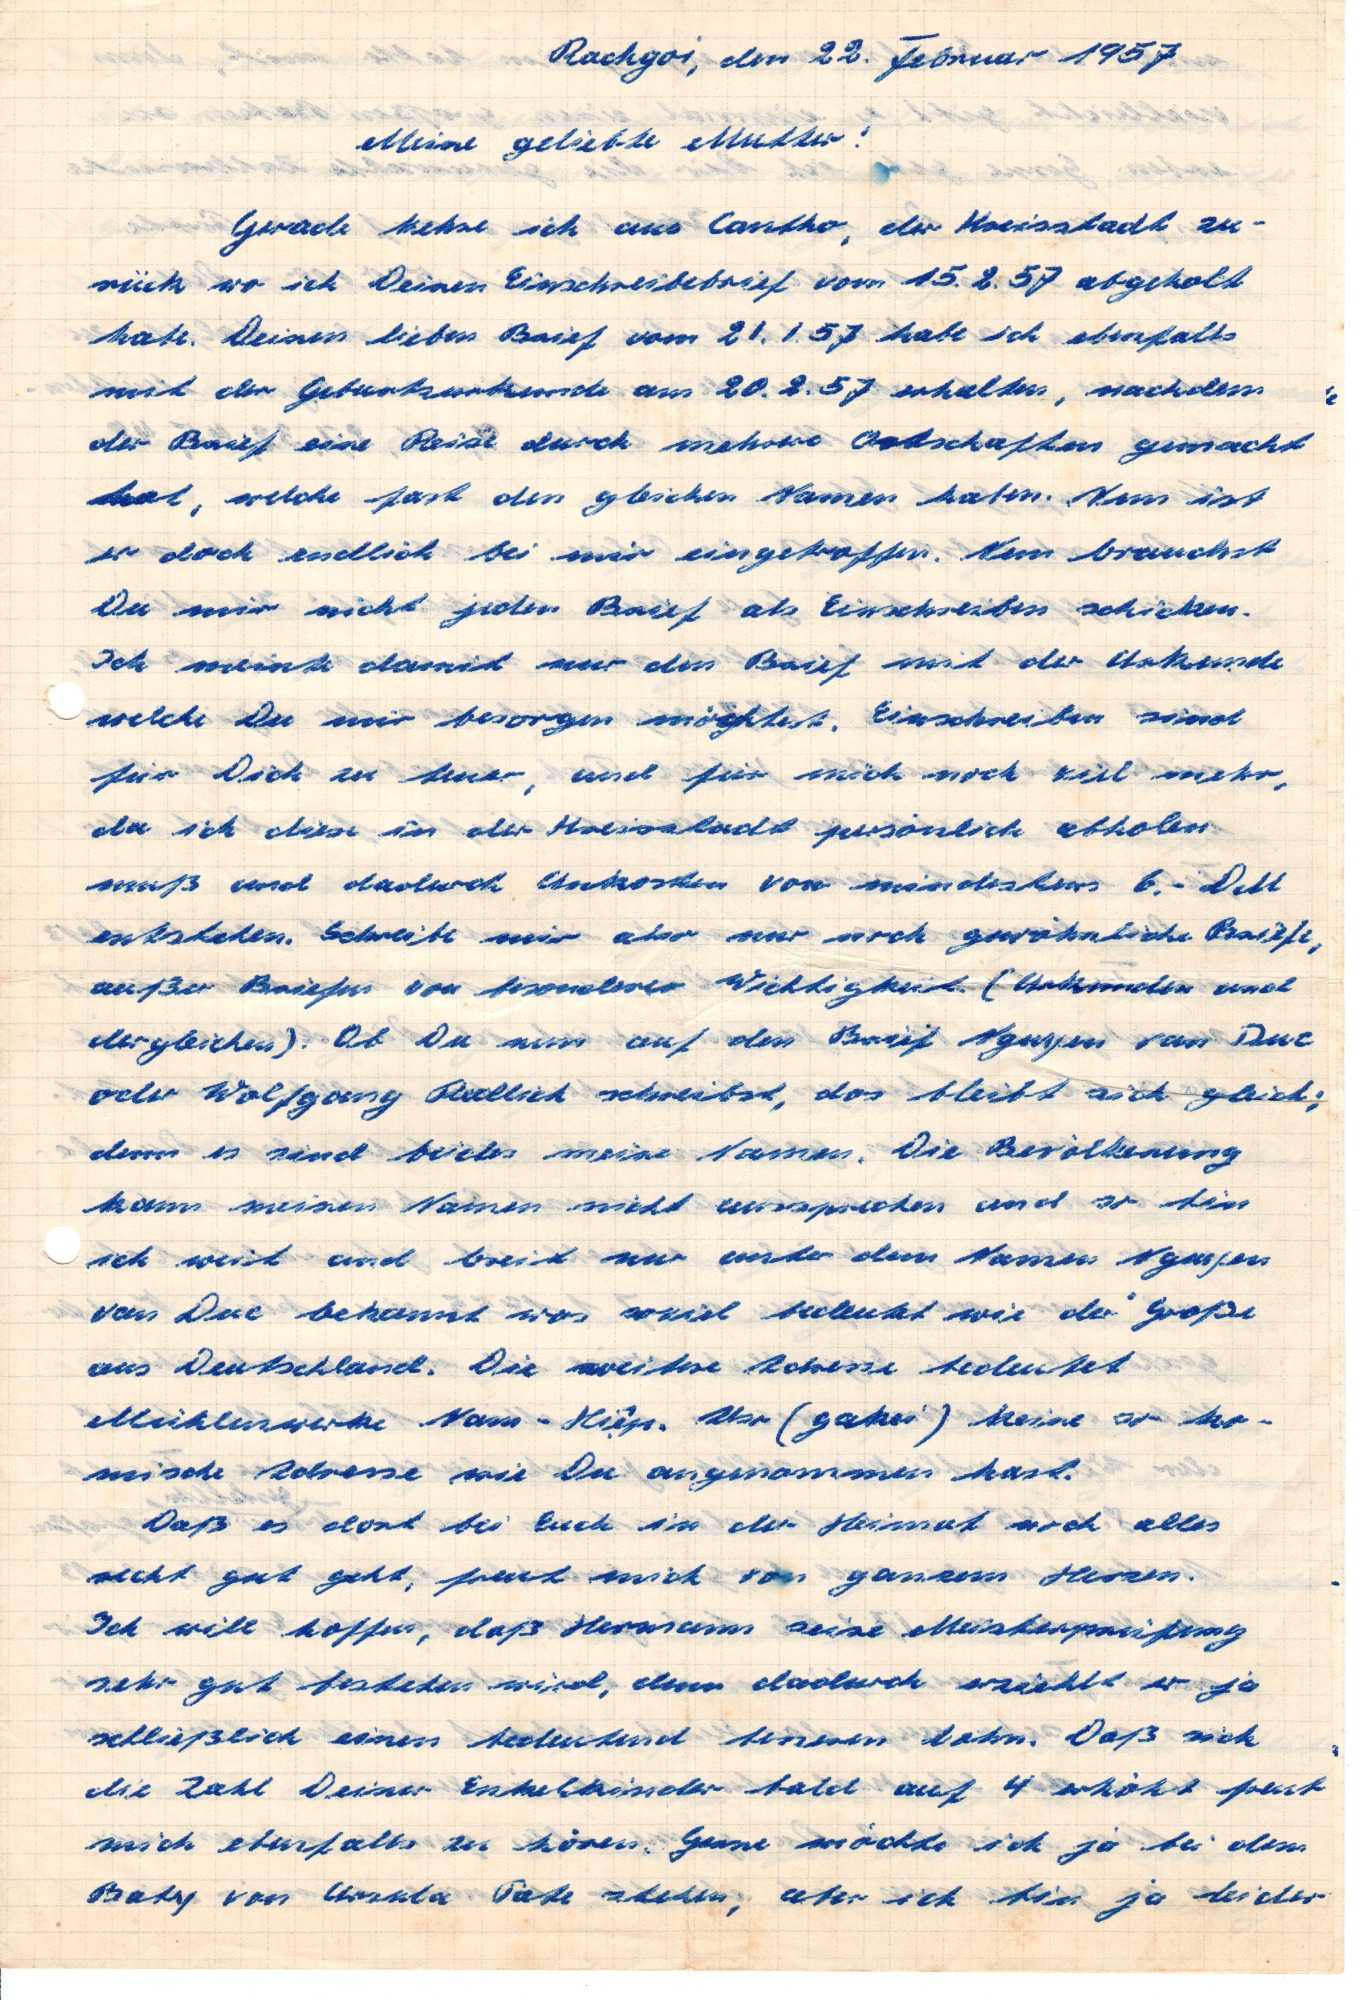 Rachgoi, den 22. Februar 1957
Meine geliebte Mutter!
Gerade kehre ich aus Cantho, der Kreisstadt zu-
rück wo ich Deinen Einschreibebrief vom 15.2.57 abgeholt
habe. Deinen lieben Brief vom 21.1.57 habe ich ebenfalls
mit der Geburtsurkunde am 20.2.57 erhalten, nachdem
der Brief eine Reise durch mehrere Ortschaften gemacht
hat, welche fast den gleichen Namen haben. Nun ist
er doch endlich bei mir eingetroffen. Nun brauchst
Du mir nicht jeden Brief als Einschreiben schicken.
Ich meinte damit nur den Brief mit der Urkunde
welche Du mir besorgen möchtest. Einschreiben sind
für Dich zu teuer, und für mich noch viel mehr,
da ich diese in der Kreisstadt persönlich abholen
muß und dadurch Unkosten von mindestens 6.- DM
entstehen. Schreibe mir aber nur noch gewöhnliche Briefe,
außer Briefen von besonderer Wichtigkeit. (Urkunden und
dergleichen). Ob Du nun auf den Brief Nguyen van Duc
oder Wolfgang schreibst, das bleibt sich gleich;
denn es sind beides meine Namen. Die Bevölkerung
kann meinen Namen nicht aussprechen und so bin
ich weit und breit nur unter dem Namen Nguyen
van Duc bekannt was soviel bedeutet wie der Große
aus Deutschland. Die weitere Adresse bedeutet
Mühlenwerke Nam-Hiêp. Also (gakei) keine so ko-
mische Adresse wie Du angenommen hast.
Daß es dort bei Euch in der Heimat noch alles
recht gut geht, freut mich von ganzem Herzen.
Ich will hoffen, daß Hermann seine Meisterprüfung
sehr gut bestehen wird, denn dadurch erziehlt er ja
schließlich einen bedeutend besseren Lohn. Daß sich
die Zahl Deiner Enkelkinder bald auf 4 erhöht freut
mich ebenfalls zu hören. Gerne möchte ich ja bei dem
Baby von Ursula Pate stehen, aber ich bin ja leider